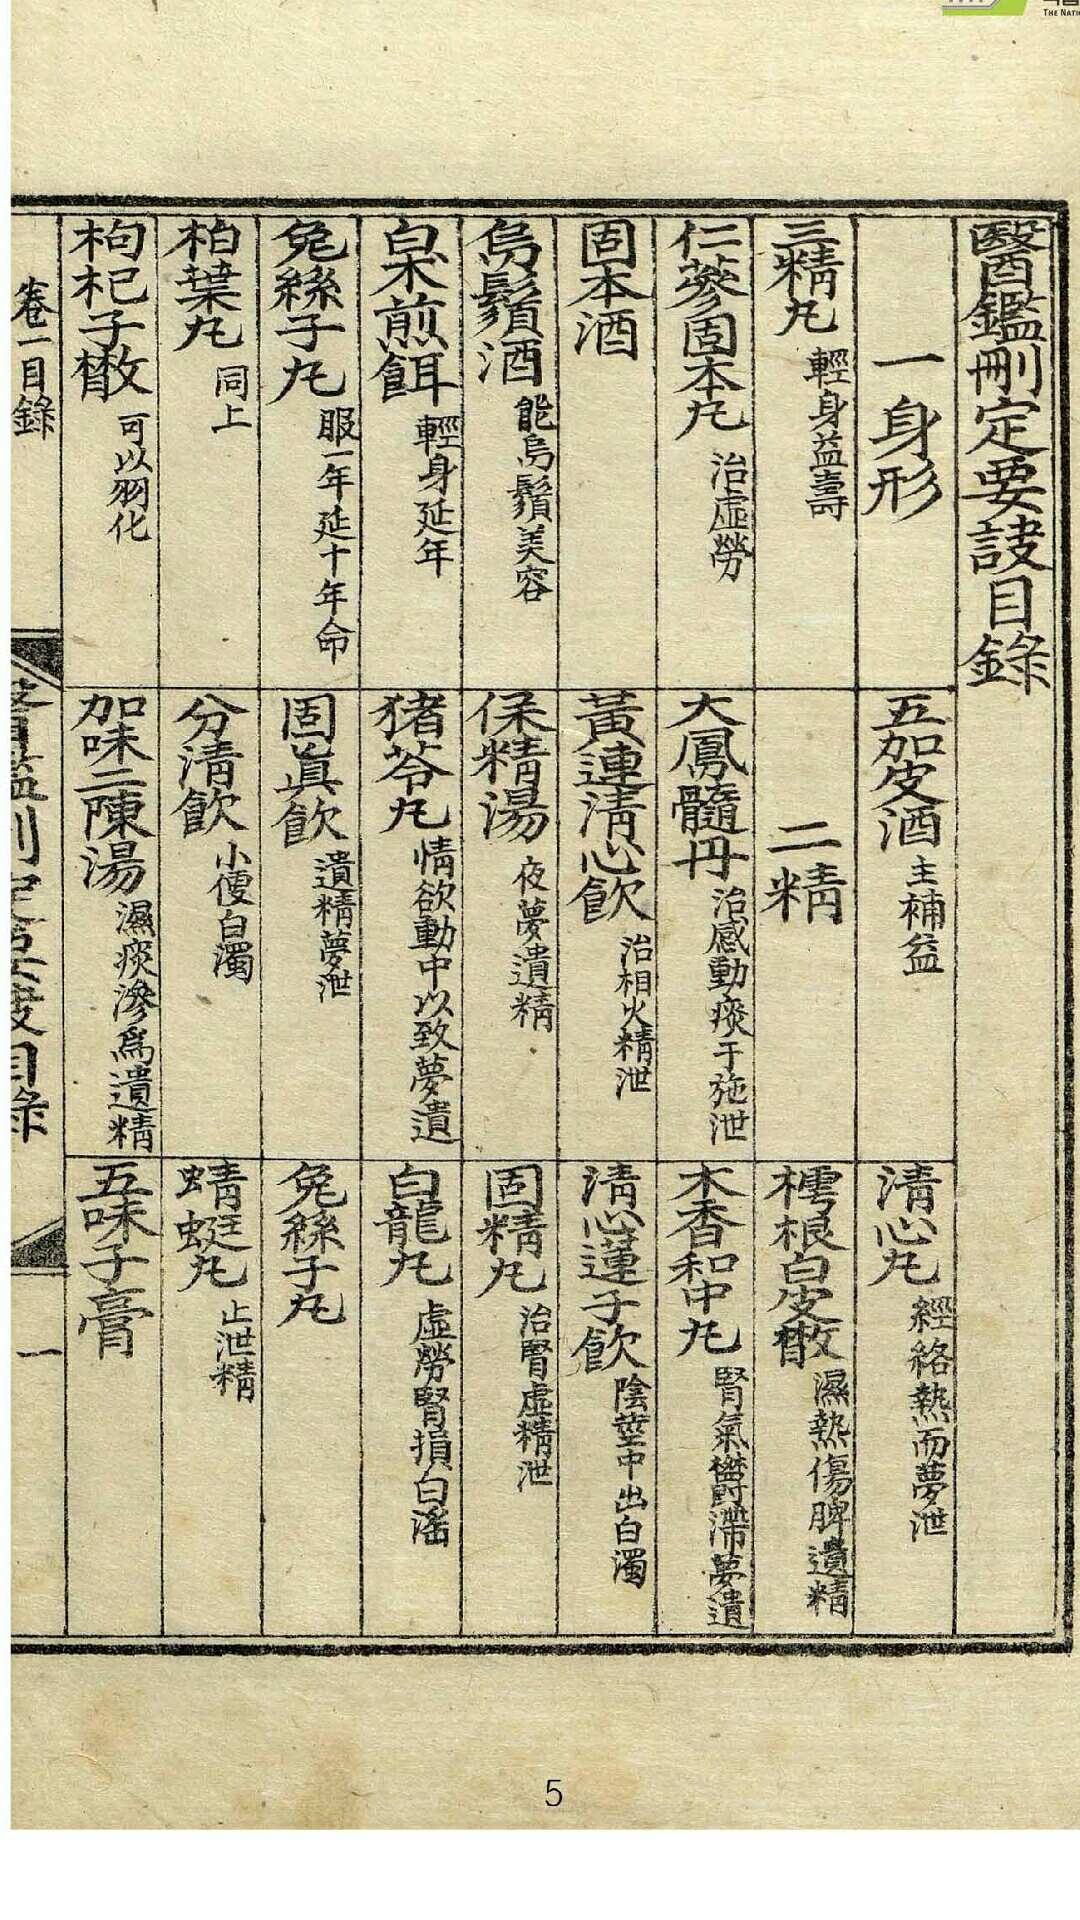 醫鑑刪定要訣目錄
一身形
三精丸 輕身益壽
仁蔘固本丸 治虛勞
固本酒
烏鬚酒 能烏鬚美容
白朮煎餌 輕身延年
兔絲子丸 服一年延十年命
柏葉丸 同上
枸杞子散 可以羽化
五加皮酒 主補益
二精
大鳳髓丹 治感動痰于施泄
黃連淸心飮 治相火精泄
保精湯 夜夢遺精
猪苓丸 情欲動中以致夢遺
固眞飮 遺精夢泄
分清飮 小便白濁
加味二陳湯 濕痰滲爲遺精
淸心丸 經絡熱而夢泄
樗根白皮散 濕熱傷脾遺精
木香和中丸 腎氣鬱滯夢遺
淸心蓮子飮 陰莖中出白濁
固精丸 治腎虛精泄
白龍丸 虛勞腎損白淫
兔絲子丸
蜻蜓丸 止泄精
五味子膏
卷一目錄
醫鑑刪定要訣目錄
一
5
THE NATI